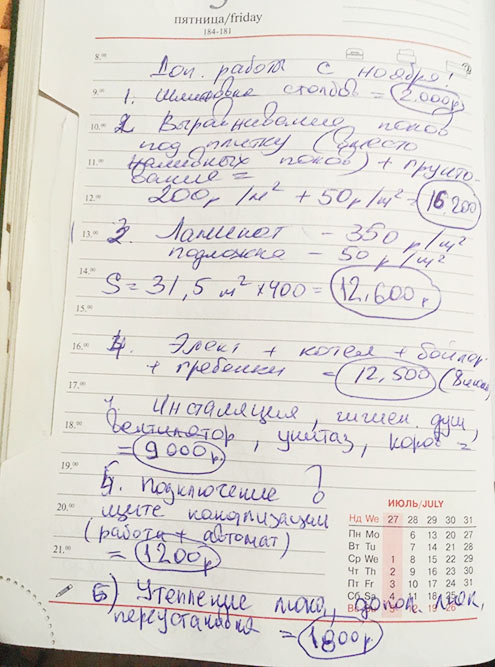 пятница/friday
184-181
8.00
Доп. работы с ноября!
9.00
1. Шлифовка столбов = 2.000р
10.00
2 Выравнивание полов
под плитку (вместо
11.00
наливных полов) + грунто-
вание =
12.00
200р/м² + 50р/м² = 16.200
13.00
3. Ламинат - 350 р/м²
подложка - 50 р/м²
14.00
S = 31,5 м² × 400 = 12.600р
15.00
16.00
4. Элект + котел + бойлер
+ гребенки = 12,500
17.00
Инсталяция, гигиен. душ,
18.00
вентилятор, унитаз, короб =
= 9000р.
19.00
5. Подключение ?
20.00
щите канализации
(работа + автомат)
21.00
= 1200р
6) Утепление люка, допол. люк,
переустановка = 1800р
ИЮЛЬ/JULY
Нд We 27 28 29 30 31
Пн Mo 6 13 20 27
Вт Tu 7 14 21 28
Ср We 1 8 15 22 29
Чт Th 2 9 16 23 30
Пт Fr 3 10 17 24 31
Сб Sa 4 11 18 25
Вс 5 12 19 26